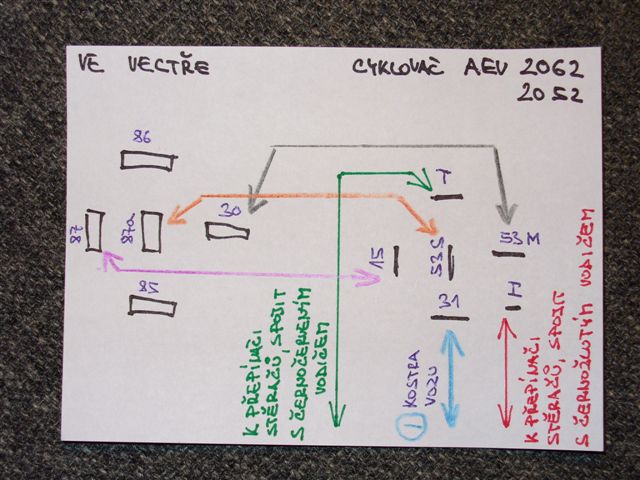 VE VECTŘE
CYKLOVAČ AEV 2062
2052
86
87
87a
30
85
T
15
53S
53M
31
H
K PŘEPÍNAČI
STĚRAČŮ, SPOJIT
S ČERNOČERVENÝM
VODIČEM
1 KOSTRA
VOZU
K PŘEPÍNAČI
STĚRAČŮ, SPOJIT
S ČERNOŽLUTÝM VODIČEM